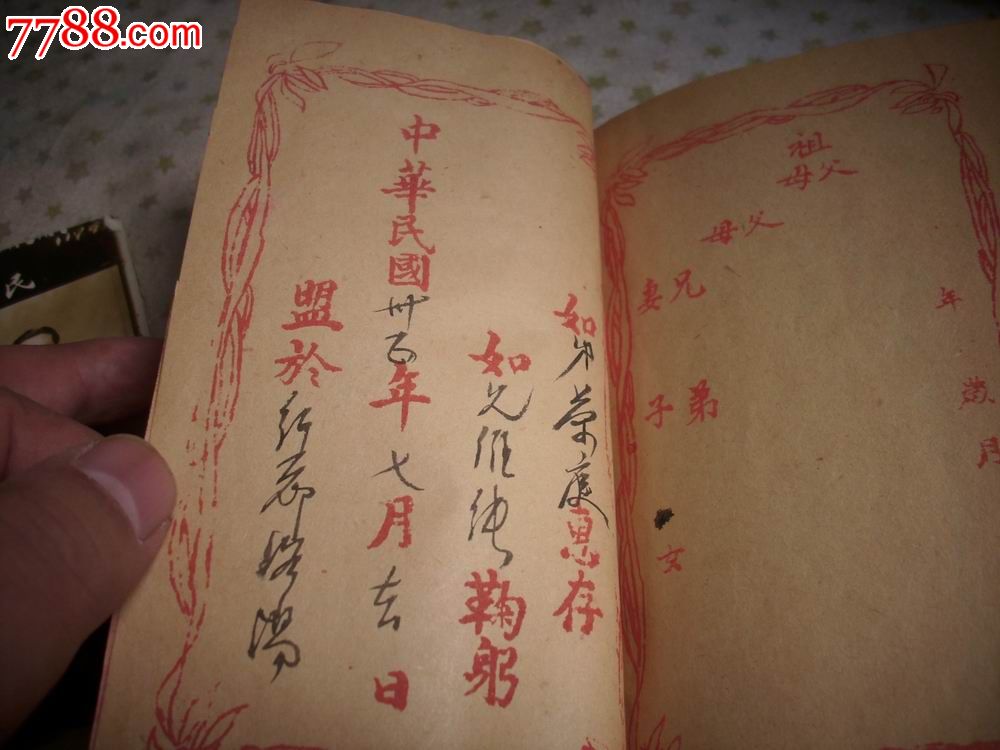 7788.com
民
如弟榮庭惠存
如兄維純鞠躬
中華民國卅五年七月吉日
盟於
祖父母
父母
兄
妻
弟
子
玄
年
歲
月